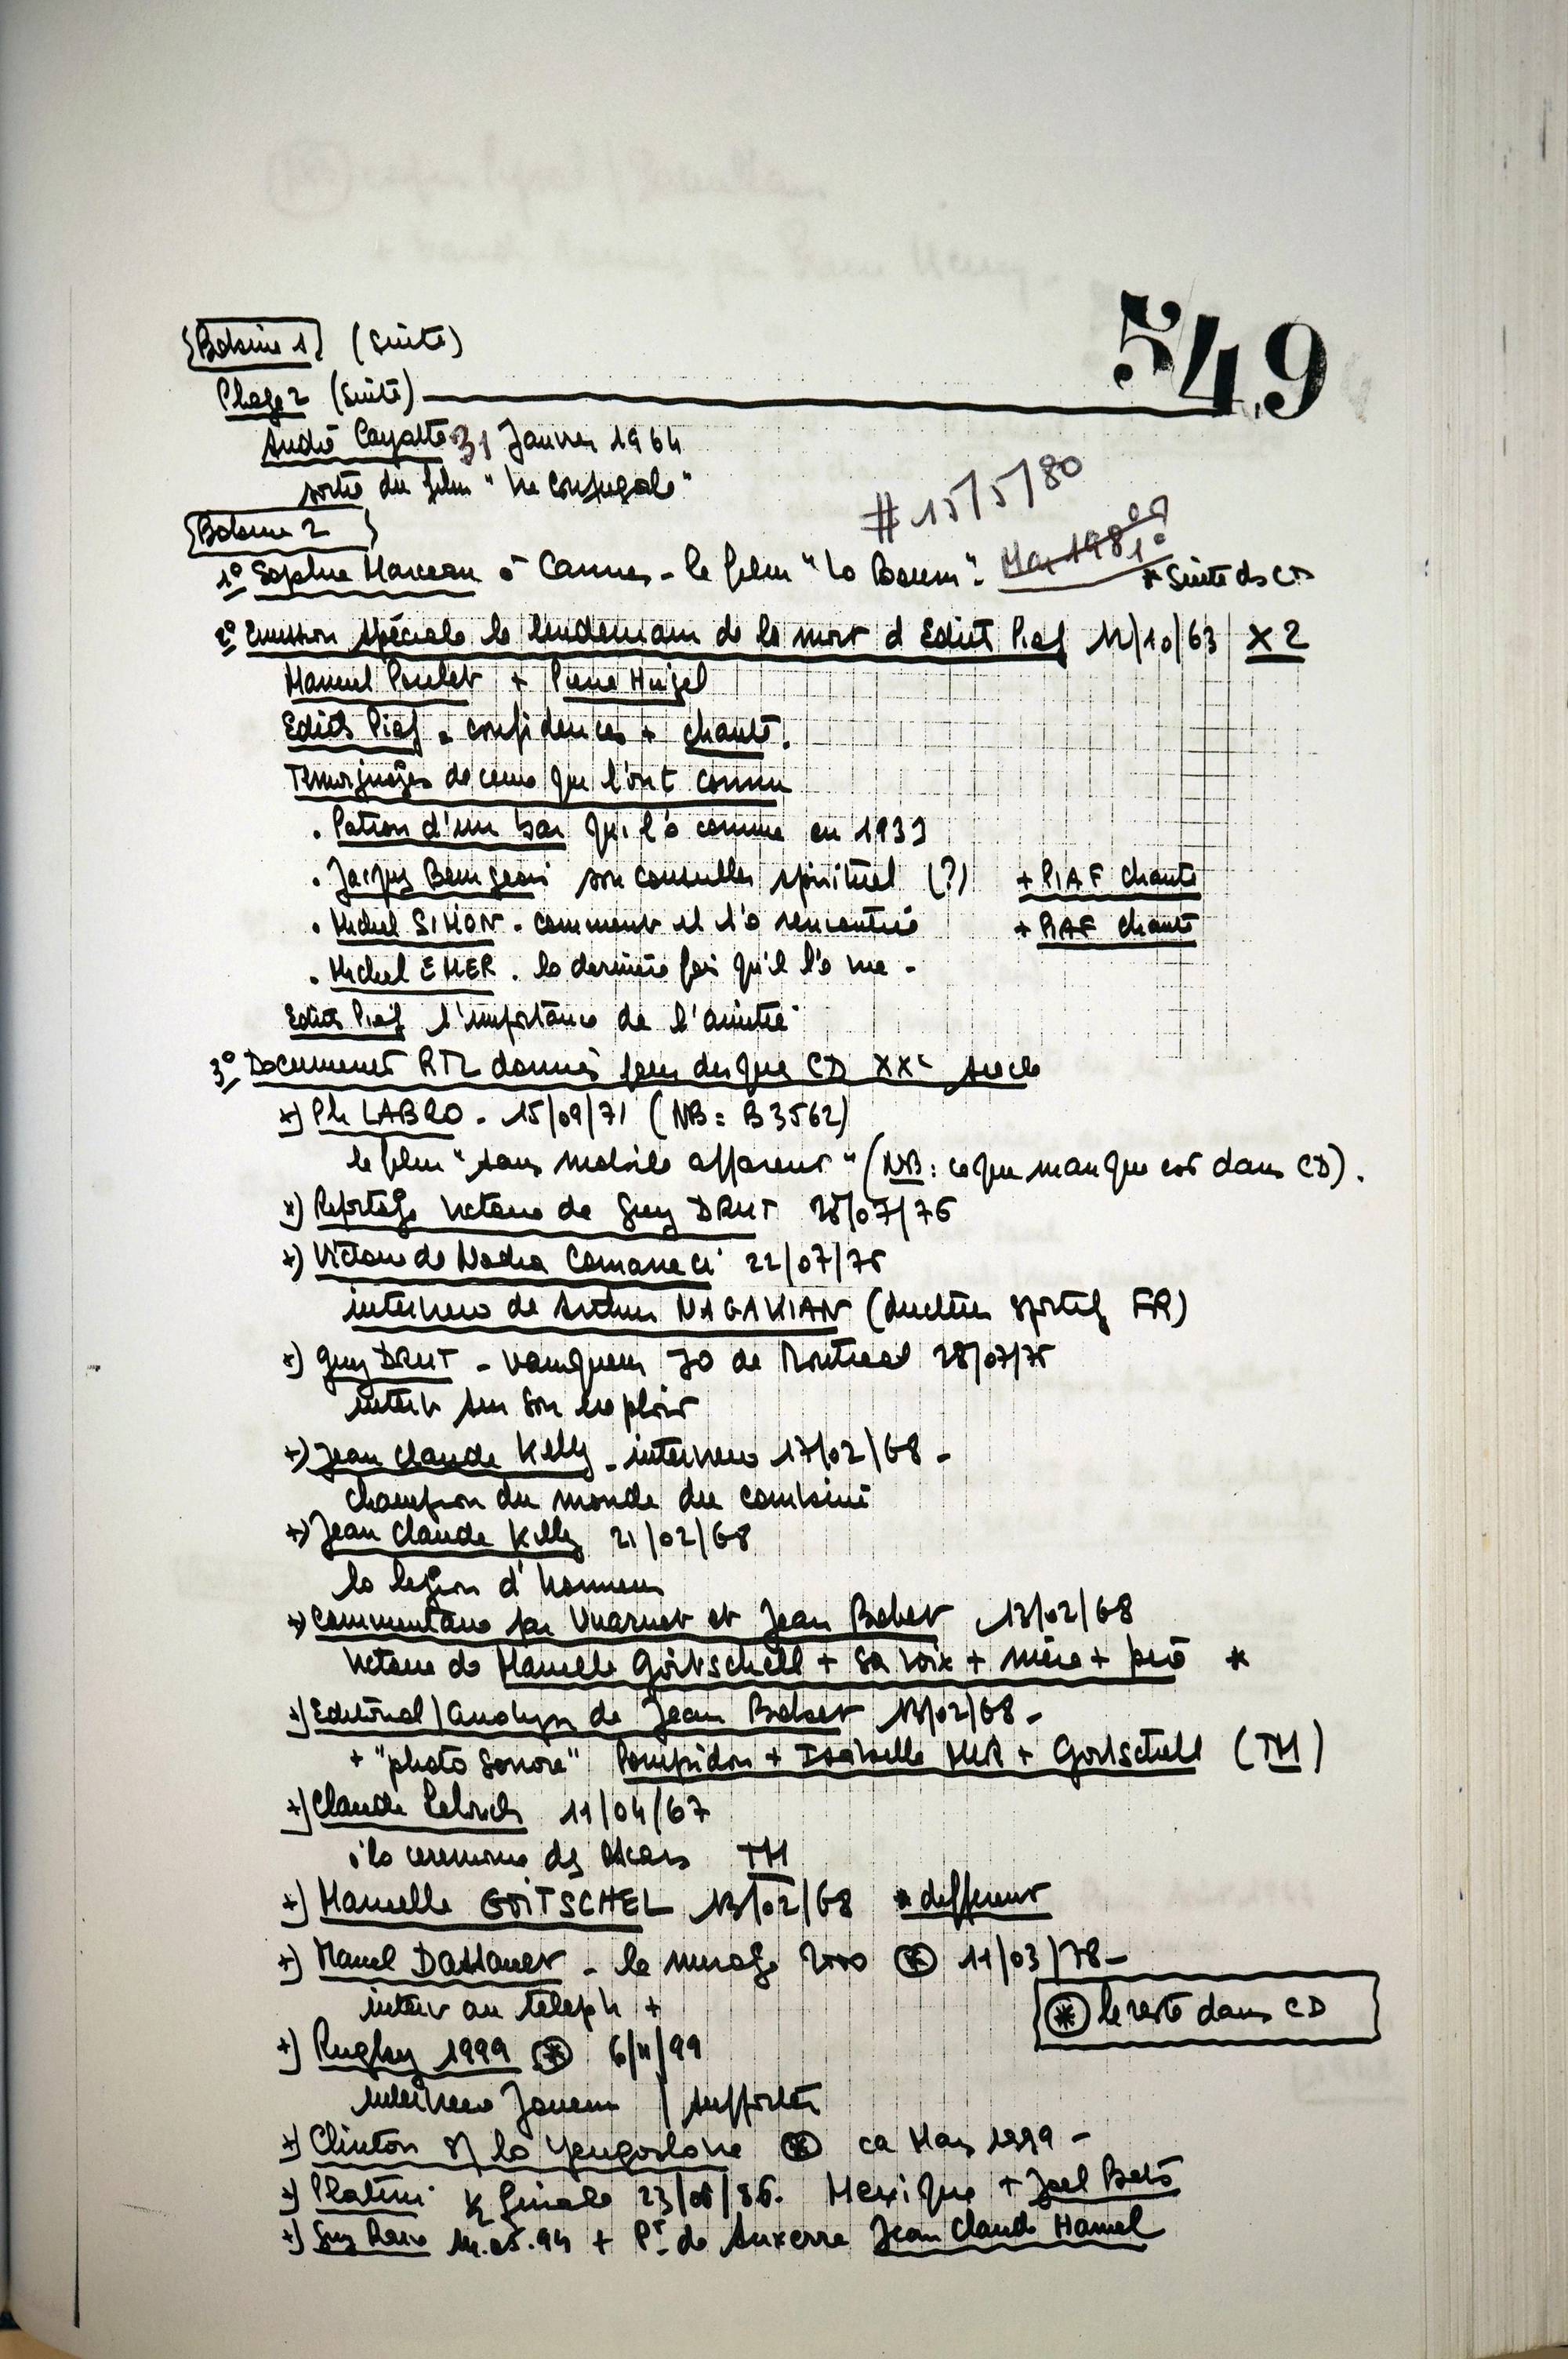 Bobine 1 (suite)
549
Plage 2 (suite)
André Cayatte 31 Janvier 1964
sortie du film "Vie Conjugale"
# 15/5/80
Bobine 2
1° Sophie Marceau à Cannes - le film "La Boum". Mai 1981
* Suite ds CD
2° Emission spéciale le lendemain de la mort d Edith Piaf 12/10/63 X 2
Marcel Poulet + Pierre Hiegel
Edith Piaf - confidences + chante.
Temoignages de ceux qui l'ont connu
. Patron d'un bar qui l'a connue en 1933
. Jacques Bourgeois son conseiller spirituel (?) + PIAF chante
. Michel SIMON - comment il l'a rencontrée + PIAF chante
. Michel EMER . la dernière fois qu'il l'a vue -
Edith Piaf l'importance de l'amitié
3° Document RTL donnés pour disque CD XXe siecle
*) Ph LABRO - 15/09/71 (NB: B3562)
le film "sans mobile apparent" (NB: ce qui manque est dans CD).
*) Reportage victoire de Guy DRUT 28/07/76
*) Victoire de Nadia Comaneci 22/07/76
interview de Arthur MAGAKIAN (directeur sportif FR)
*) Guy DRUT - vainqueur JO de Montreal 28/07/76
interv sur son exploit
*) Jean Claude Killy - interview 17/02/68 -
champion du monde du combiné
*) Jean Claude Killy 21/02/68
la legion d'honneur
*) Commentaire par Vuarnet et Jean Bobet 13/02/68
victoire de Marielle Goitschell + sa voix + mère + père *
*) Editorial/analyse de Jean Bobet 13/02/68 -
+ "photo sonore" Pompidou + Isabelle MIR + Goitschell (TM)
*) Claude Lelouch 11/04/67
à la ceremonie des Oscars TM
*) Marielle GOITSCHEL 13/02/68 * different
*) Marcel Dassault - le mirage 2000 (*) 11/03/78 -
interv au téleph +
(*) le reste dans CD
*) Rugby 1999 (*) 6/11/99
interview Joueurs / supporters
*) Clinton s/ la Yougoslavie (*) ca Mars 1999 -
*) Platini 1/4 finale 23/06/86. Mexique + Joel Bats
*) Guy Roux 14.05.94 + Pt de Auxerre Jean Claude Hamel